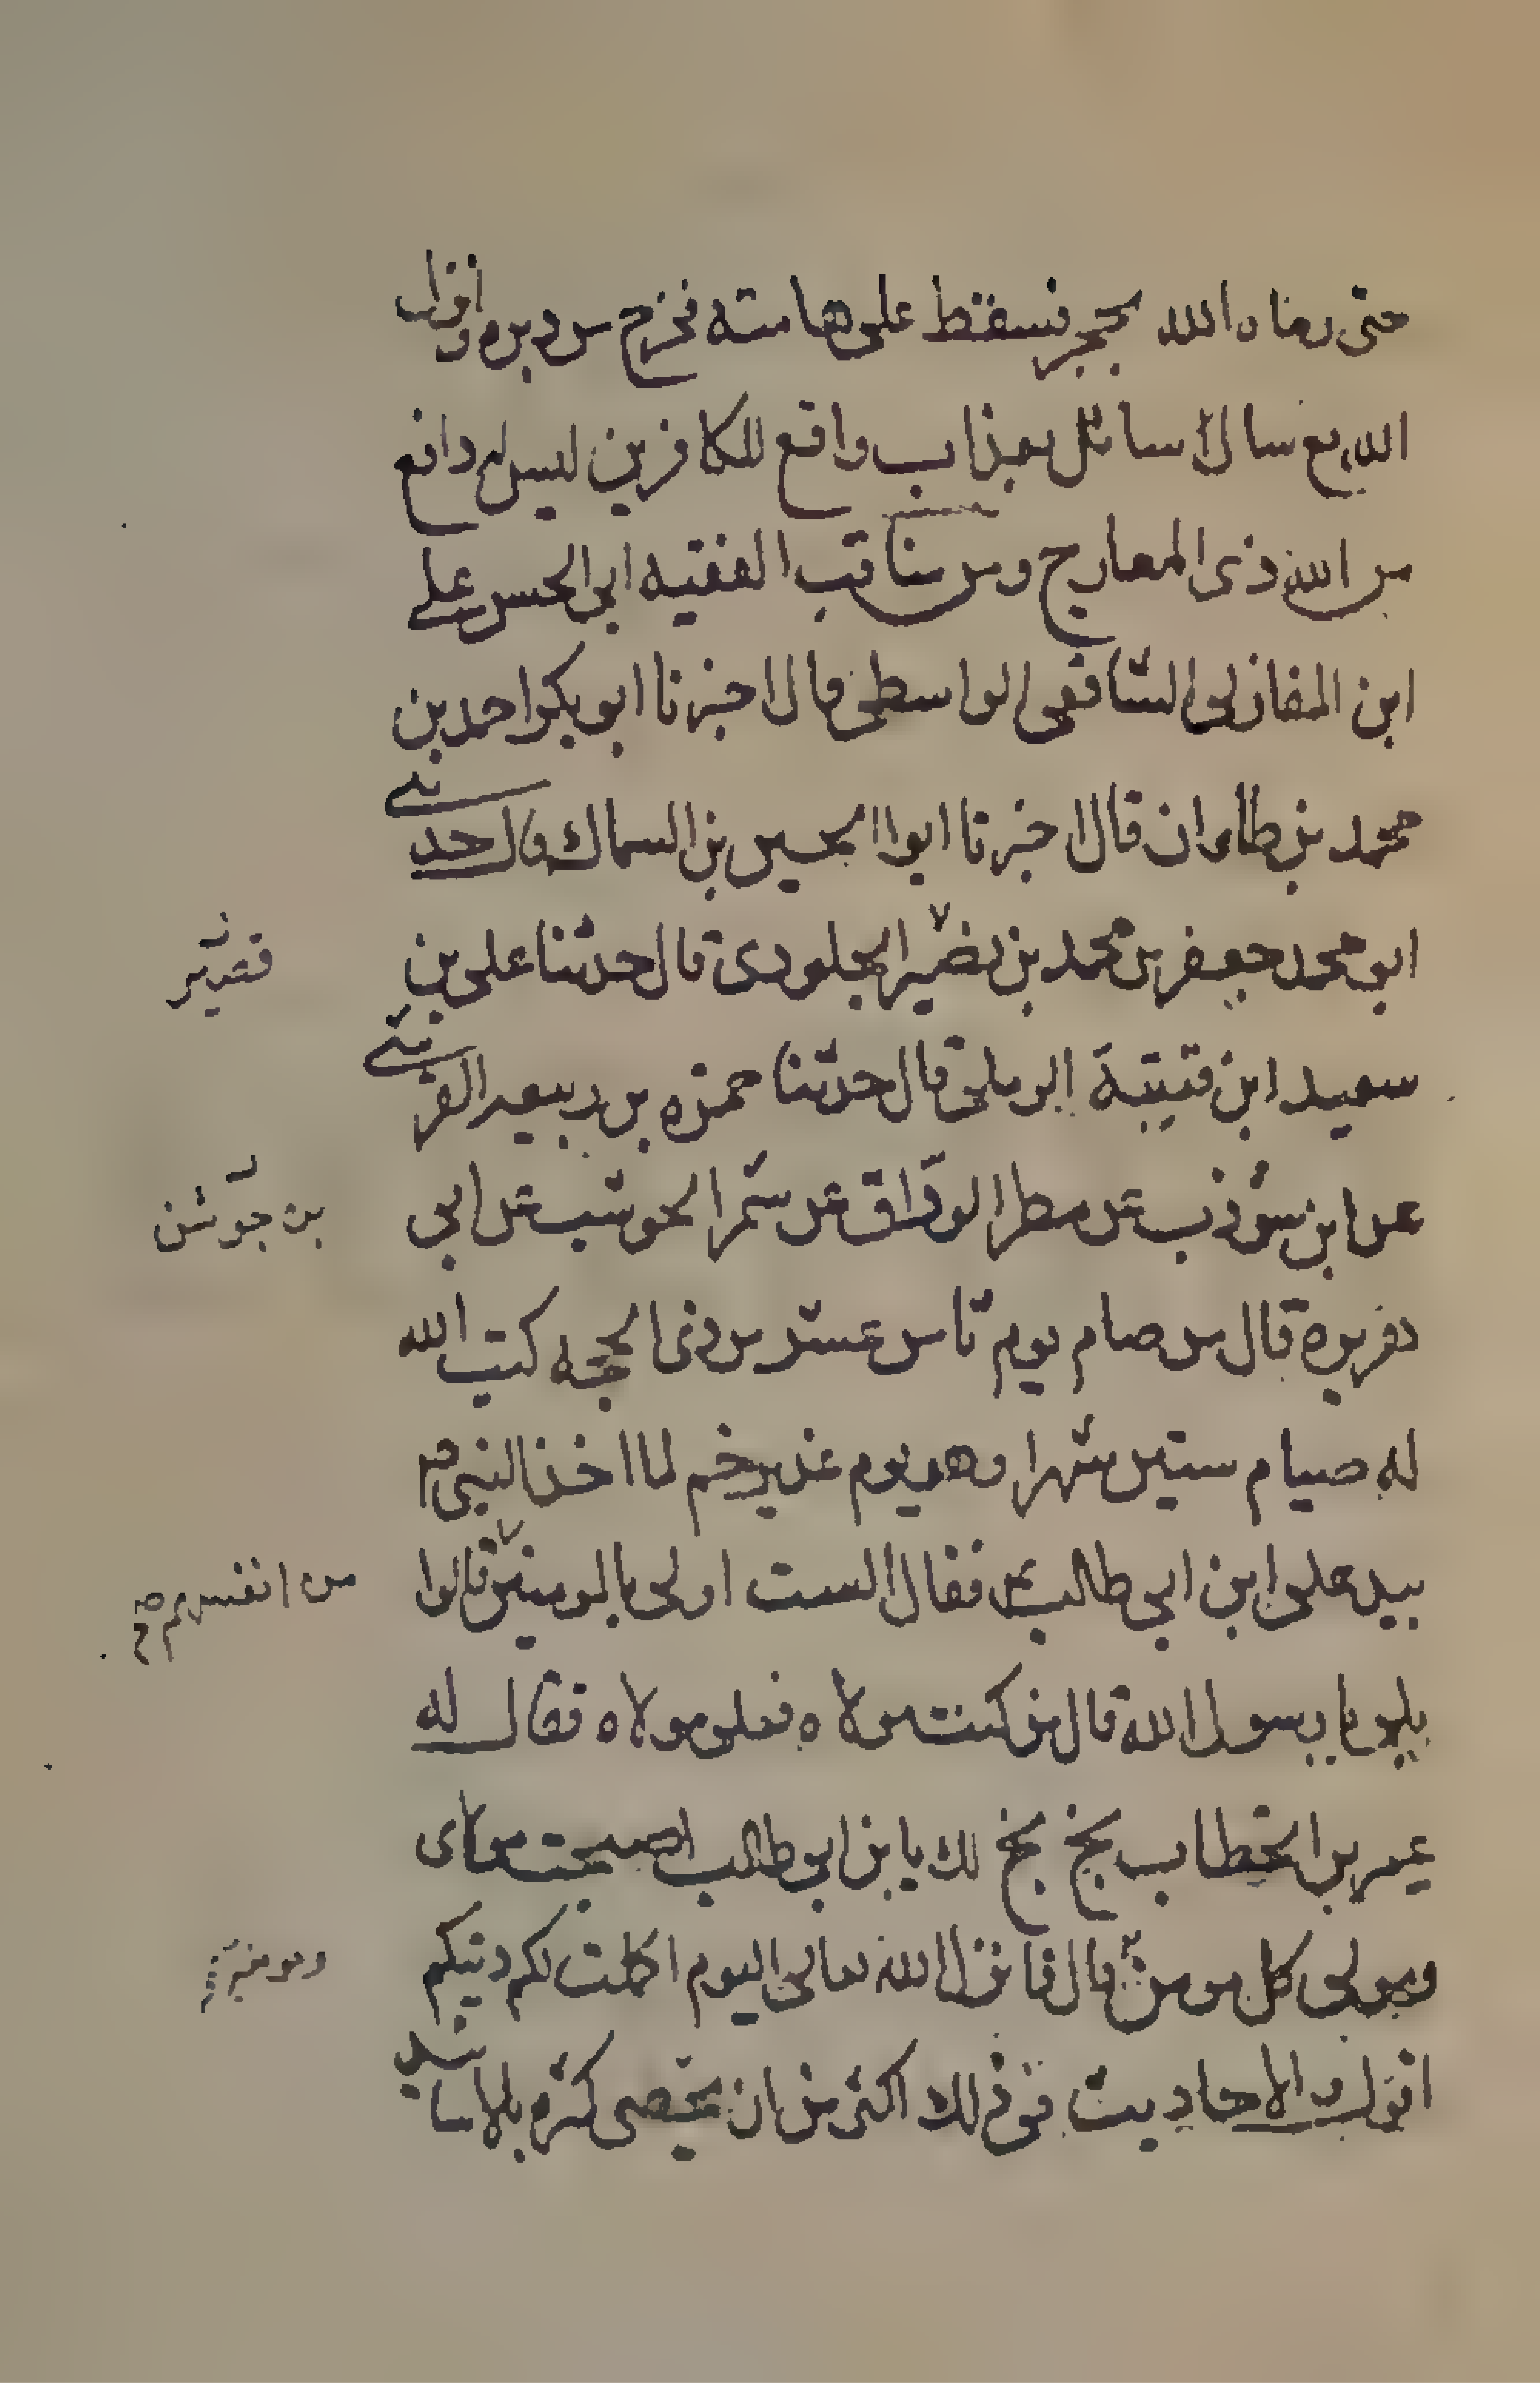 حتى رماه الله بحجر فسقط على هامته فخرج من دبره وانزل
الله تع سال سائل بعذاب واقع للكافرين ليس له دافع
من الله ذى المعارج ومن مناقب الفقيه ابى الحسن على
ابن المغازلى الشافعى الواسطى قال اخبرنا ابو بكر احمد بن
محمد بن طاوان قال اخبرنا ابو الحسين بن السماك قال حدثنى
ابو محمد جعفر بن محمد بن نضير الجلودى قال حدثنا على بن
قصير
سعيد ابن قتيبة الرملى قال حدثنا حمزه بن ربيعه القرشى
عن ابن شوذب عن مطر الوراق عن شمر الحوشب عن ابى
بن جوشن
هريره قال من صام يوم ثامن عشر من ذى الحجه كتب الله
له صيام ستين شهرا وهو يوم غدير خم لما اخذ النبى ص
بيد على ابن ابى طالب فقال الست اولى بالمومنين قالوا
من انفسهم صح
بلى يا رسول الله قال من كنت مولاه فعلى مولاه فقال له
عمر بن الخطاب بخ بخ لك يا بن ابى طالب اصبحت مولاى
ومولى كل مومن قال فانزل الله تعالى اليوم اكملت لكم دينكم
ومومنة
اقول والاحاديث فى ذلك اكثر من ان تحصى كثره بالاسانيد